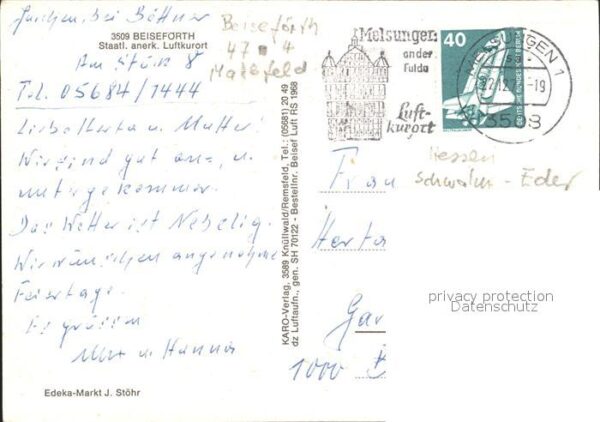 3509 BEISEFORTH
Staatl. anerk. Luftkurort
bei
Am 8
Tel. 05684/7444
Liebe Herta u. Mutter!
Wir sind gut an= u.
untergekommen.
Das Wetter ist Nebelig.
Wir wünschen angenehme
Feiertage.
Es grüssen
u. Hanna
Edeka-Markt J. Stöhr
Beiseförth
47 4
KARO-Verlag, 3589 Knüllwald/Remsfeld, Tel.: (05681) 20 49
dz Luftaufn., gen. SH 70122 - Bestellnr. Beisef Luft RS 1968
Melsungen
an der
Fulda
Luft-
kurort
40
DEUTSCHE BUNDESPOST BERLIN
MELSUNGEN 1
-19
3508
Hessen
Schwalm - Eder
Frau
Herta
Gar
1000
privacy protection
Datenschutz